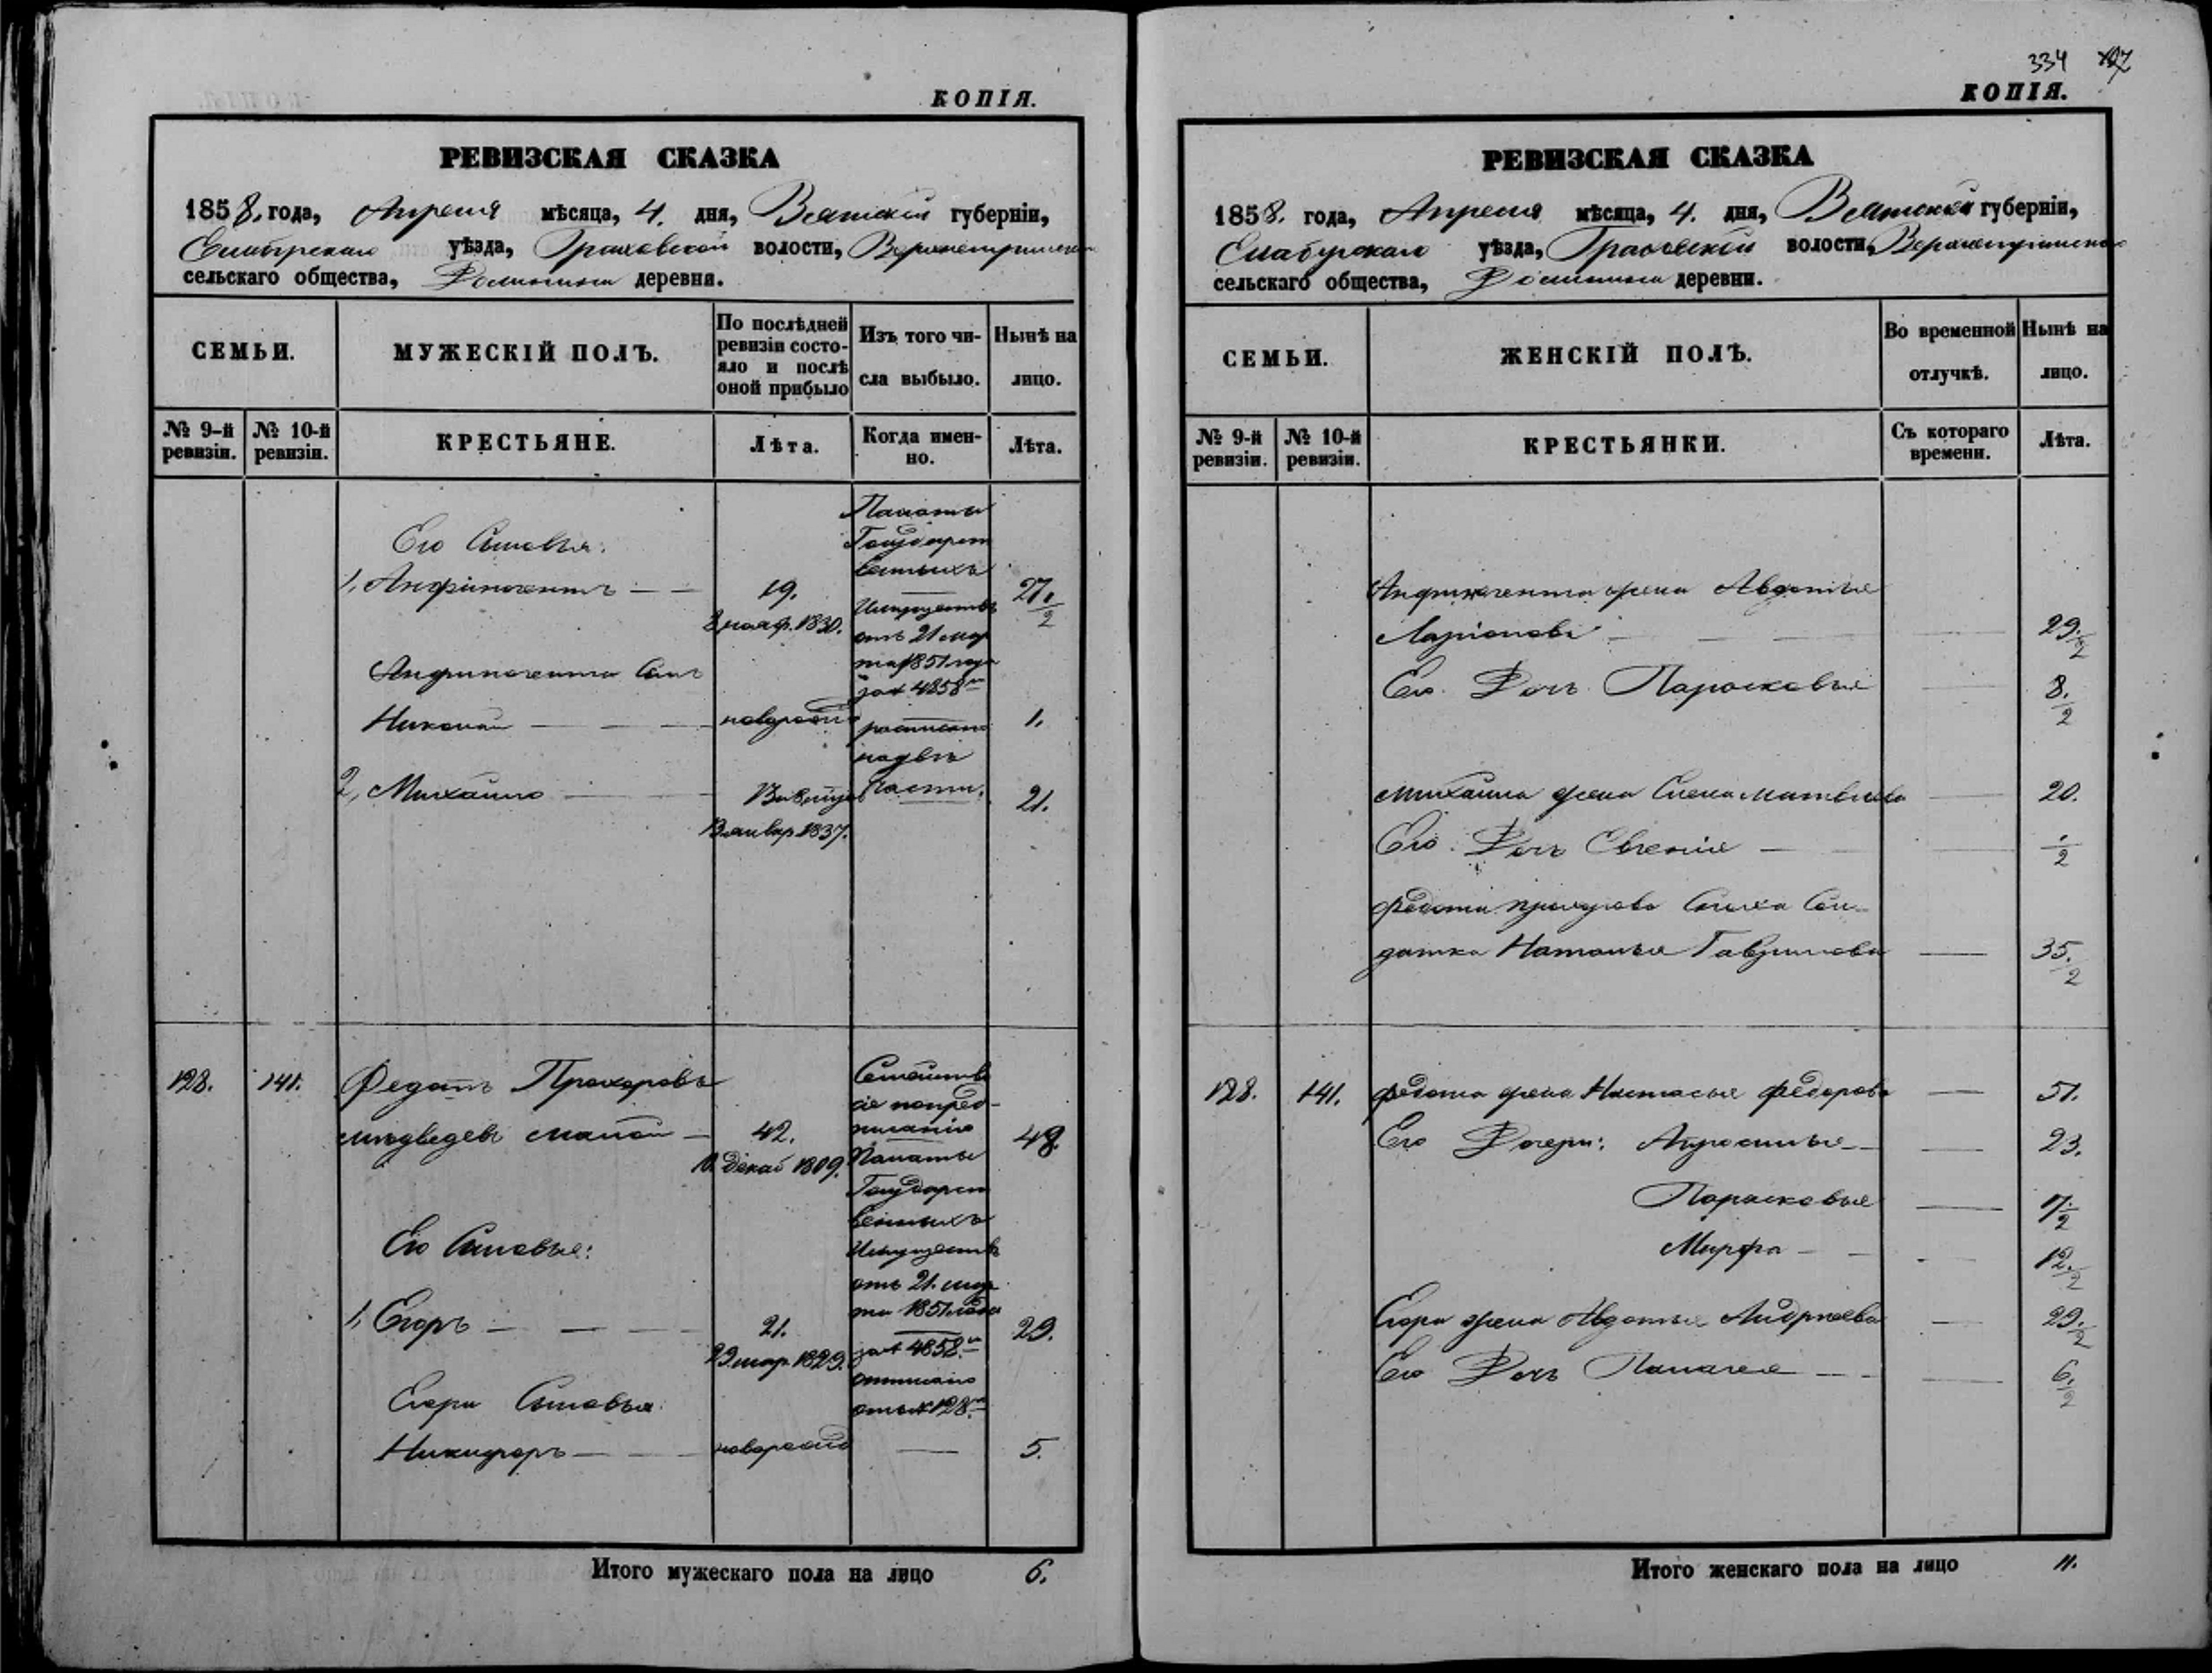 КОПІЯ.
РЕВИЗСКАЯ СКАЗКА
1858. года, Апреля мѣсяца, 4. дня, Вятской губерніи,
Елабугской уѣзда, Граховской волости,
сельскаго общества, деревни.
СЕМЬИ.
МУЖЕСКІЙ ПОЛЪ.
По послѣдней ревизіи состояло и послѣ оной прибыло
Изъ того числа выбыло.
Нынѣ на лицо.
№ 9-й ревизіи.
№ 10-й ревизіи.
КРЕСТЬЯНЕ.
Лѣта.
Когда именно.
Лѣта.
Палаты
Государст
венныхъ
Имуществъ
отъ 21 мар
та 1851 года
за № 4858м
росписано
на двѣ
части.
Его Сыновья:
1, 19. 27. /2
8 нояб. 1830.
Сынъ
Николай новорожд 1.
2, Михайло 21.
13 январ 1837.
128. 141. Федотъ Прохоровъ
Медведевъ малой 42. 48.
10. декаб 1809.
Семейство
сіе по пред-
писанію
Палаты
Государст
венныхъ
Имуществъ
отъ 21. мар
та 1851 года
за № 4858.м
отписано
отъ № 128м
Его Сыновья:
1, Егоръ 21. 29.
23 мар. 1829.
Егора Сыновья:
Никифоръ новорожд 5.
Итого мужескаго пола на лицо 6.
334
КОПІЯ.
РЕВИЗСКАЯ СКАЗКА
1858. года, Апреля мѣсяца, 4. дня, Вятской губерніи,
Елабугской уѣзда, Граховской волости,
сельскаго общества, деревни.
СЕМЬИ.
ЖЕНСКІЙ ПОЛЪ.
Во временной отлучкѣ.
Нынѣ на лицо.
№ 9-й ревизіи.
№ 10-й ревизіи.
КРЕСТЬЯНКИ.
Съ котораго времени.
Лѣта.
жена Авдотья
Ларіонова 29. /2
Его Дочь Парасковья 8. /2
Михаила жена Матвеева 20.
Его Дочь Евгенія /2
Федота Прохорова Сноха Сол-
датка Наталья Гаврилова 35. /2
128. 141. Федота жена Настасья Федорова 51.
Его Дочери: 23.
Парасковья 17. /2
Марфа 12. /2
Егора жена Авдотья Андреева 29. /2
Его Дочь Палагея 6. /2
Итого женскаго пола на лицо 11.